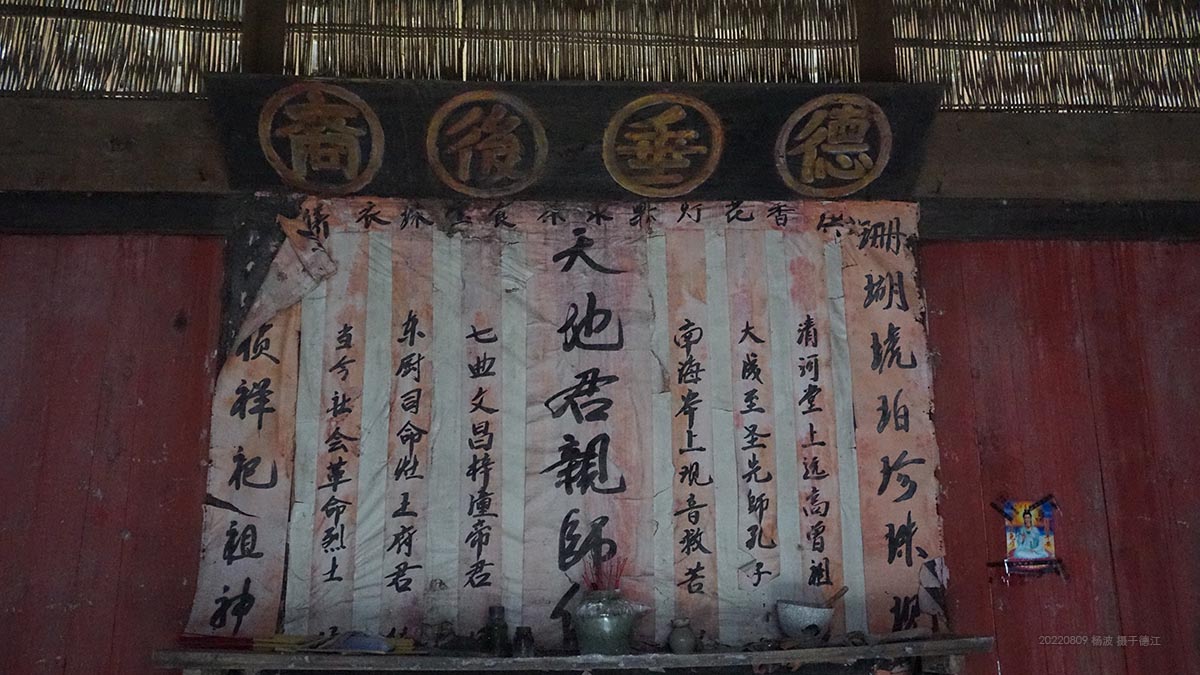 德垂後裔
香花灯點水茶食宝珠衣
珊瑚琥珀珍珠
清河堂上远高曾祖
大成至圣先師孔子
南海岸上观音救苦
天地君親師
七曲文昌梓潼帝君
东厨司命灶王府君
当今社会革命烈士
侦祥祀祖神
20220809 杨波 摄于德江